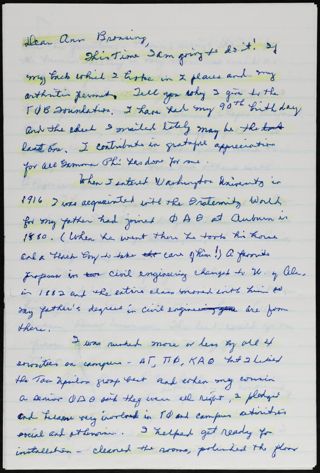 Dear Ann Bronsing,
This Time I am going to do it! If
my back which I broke in 2 places and my
arthritis permits I'll tell you why I give to the
ΓΦΒ Foundation. I have had my 90th birthday
and the check I mailed lately may be the
last one. I contribute in grateful appreciation
for all Gamma Phi has done for me.
When I entered Washington University in
1916 I was acquainted with the Fraternity World
for my father had joined ΦΔΘ at Auburn in
1880. (When he went there he took his horse
and a Black Boy to take care of him!) A favorite
professor in civil engineering changed to U. of Ala.
in 1882 and the entire class moved with him so
my father's degrees in civil engineering are from
there.
I was rushed more or less by all 4
sororities on campus - ΔΓ, ΠΦ, ΚΑΘ but I liked
the Tau Upsilon group best and when my cousin
a senior ΦΔΘ said they were all right, I pledged
and became very involved in ΤΥ and campus activities
social and otherwise. I helped get ready for
installation - cleaned the rooms, polished the floor